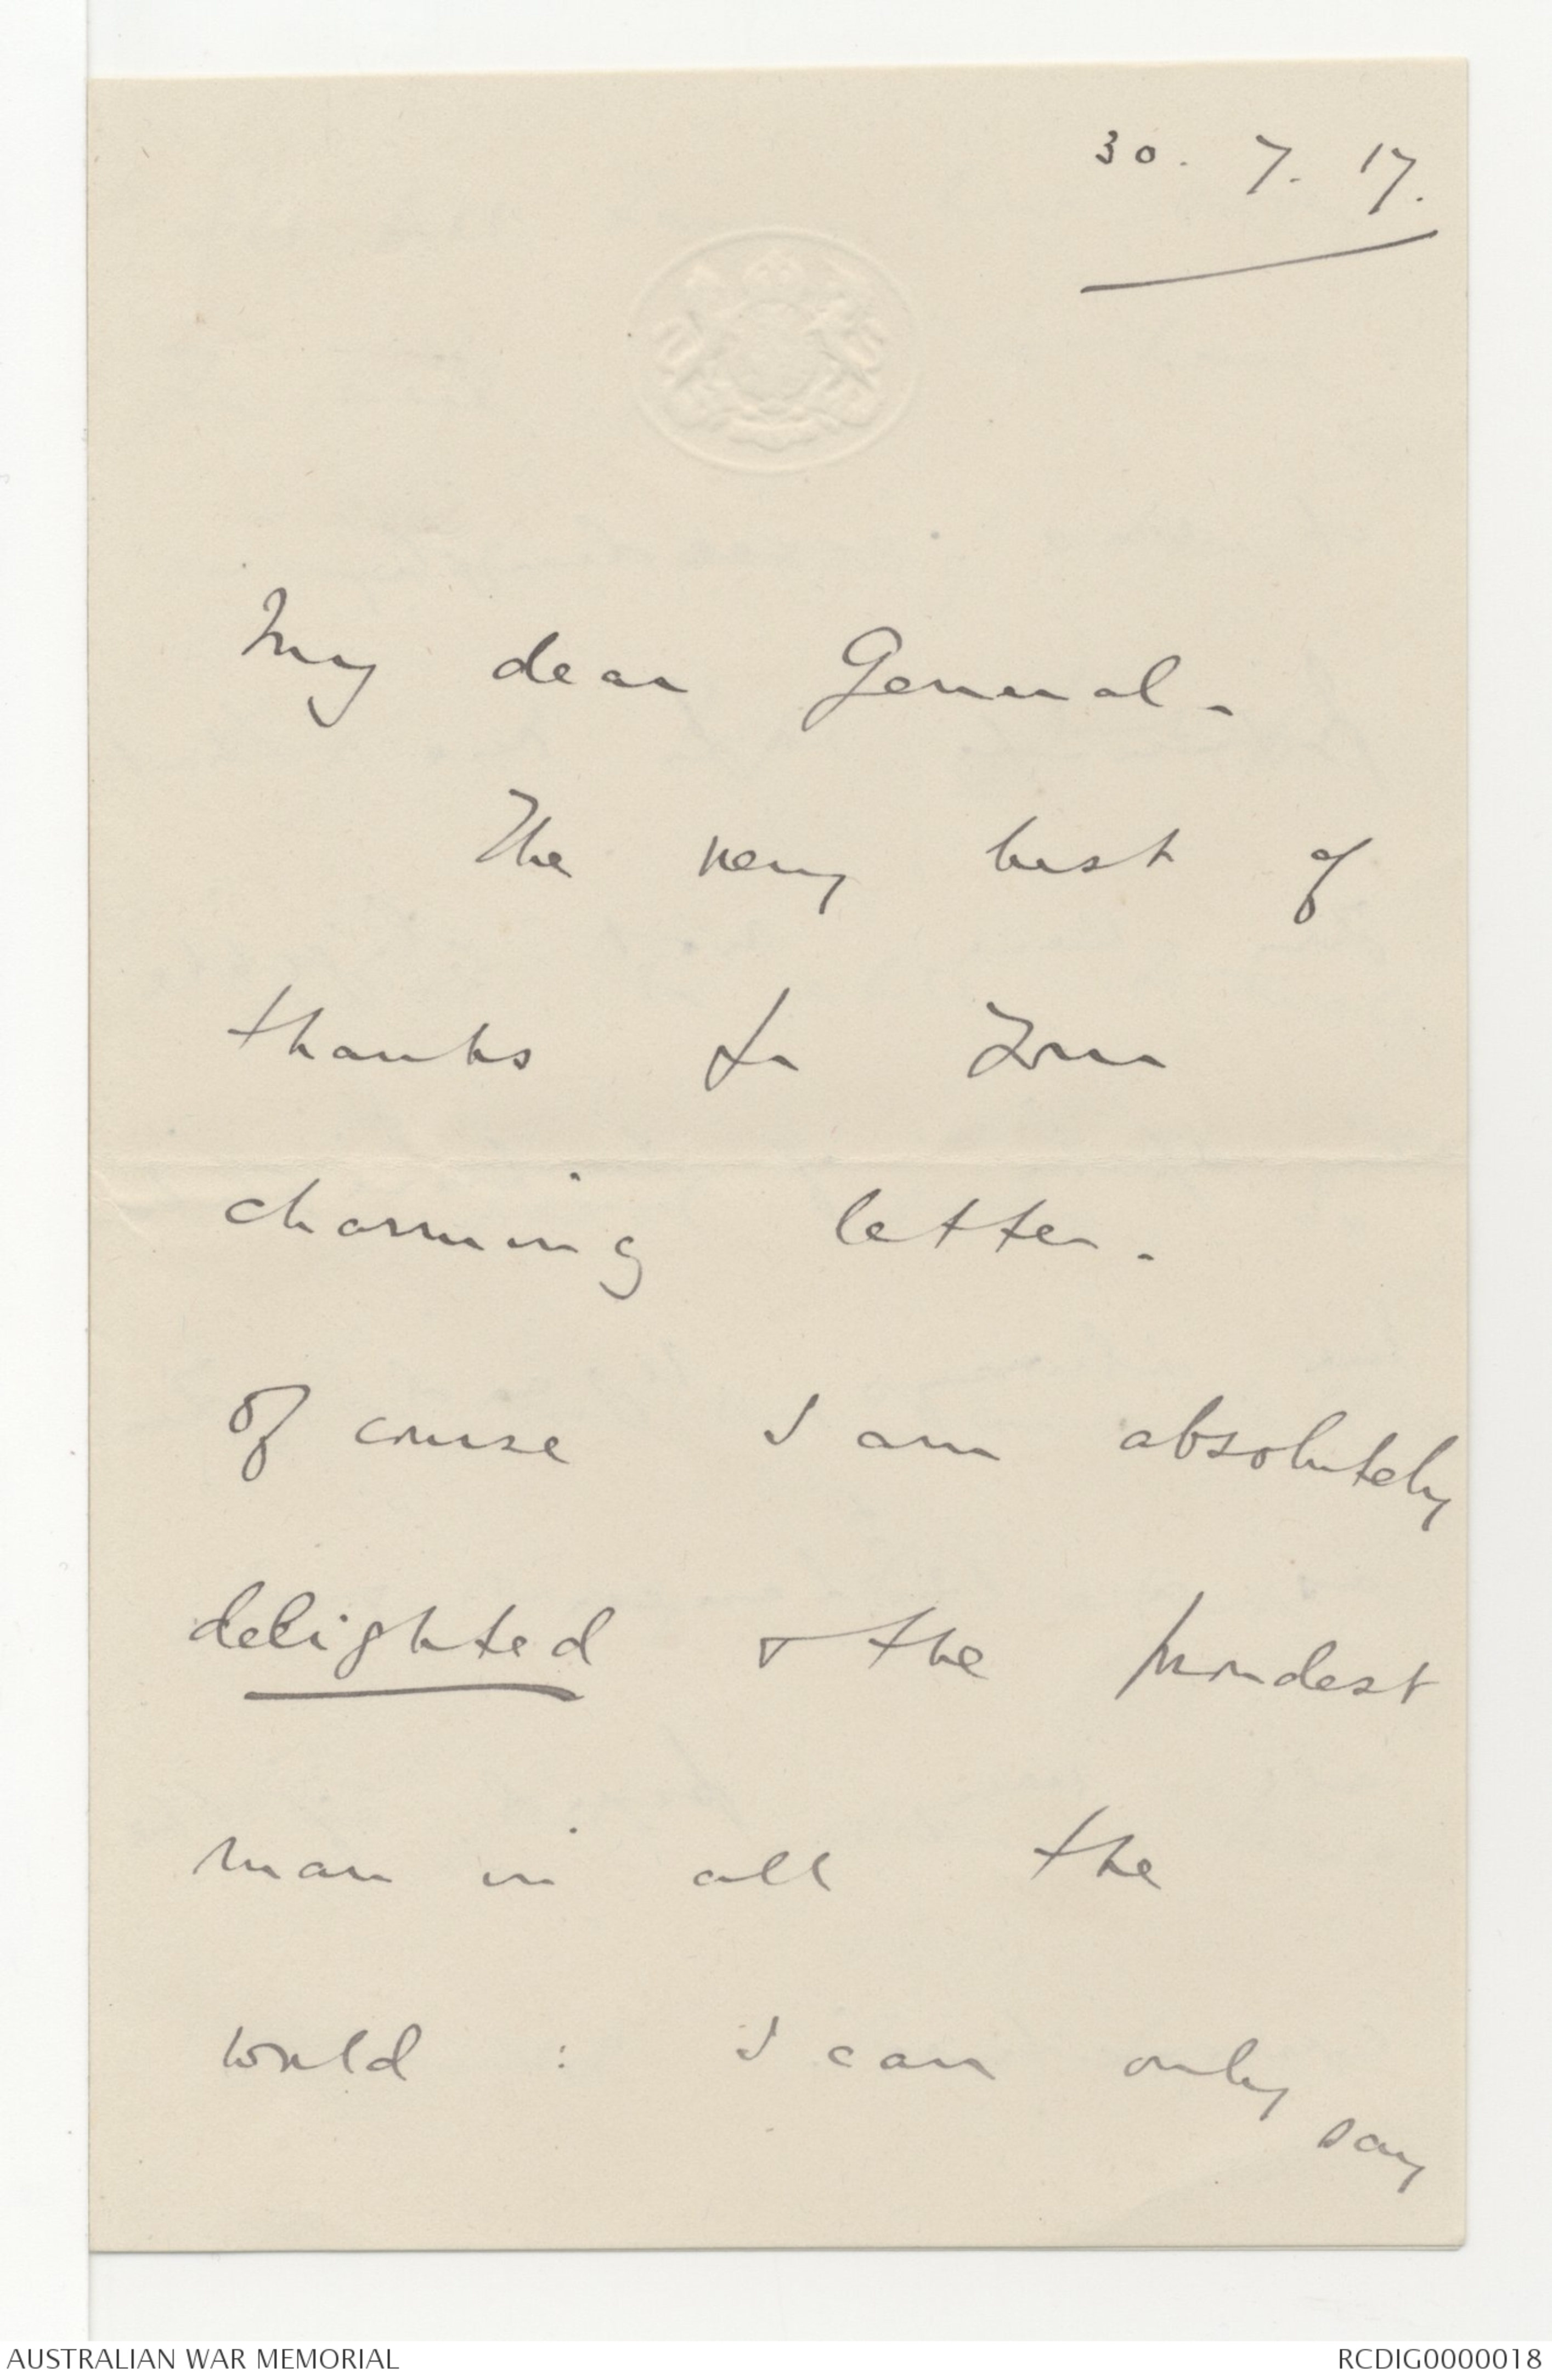 30. 7. 17.
My dear General.
The very best of
thanks for your
charming letter.
Of course I am absolutely
delighted & the proudest
man in all the
world : I can only
say
AUSTRALIAN WAR MEMORIAL
RCDIG0000018